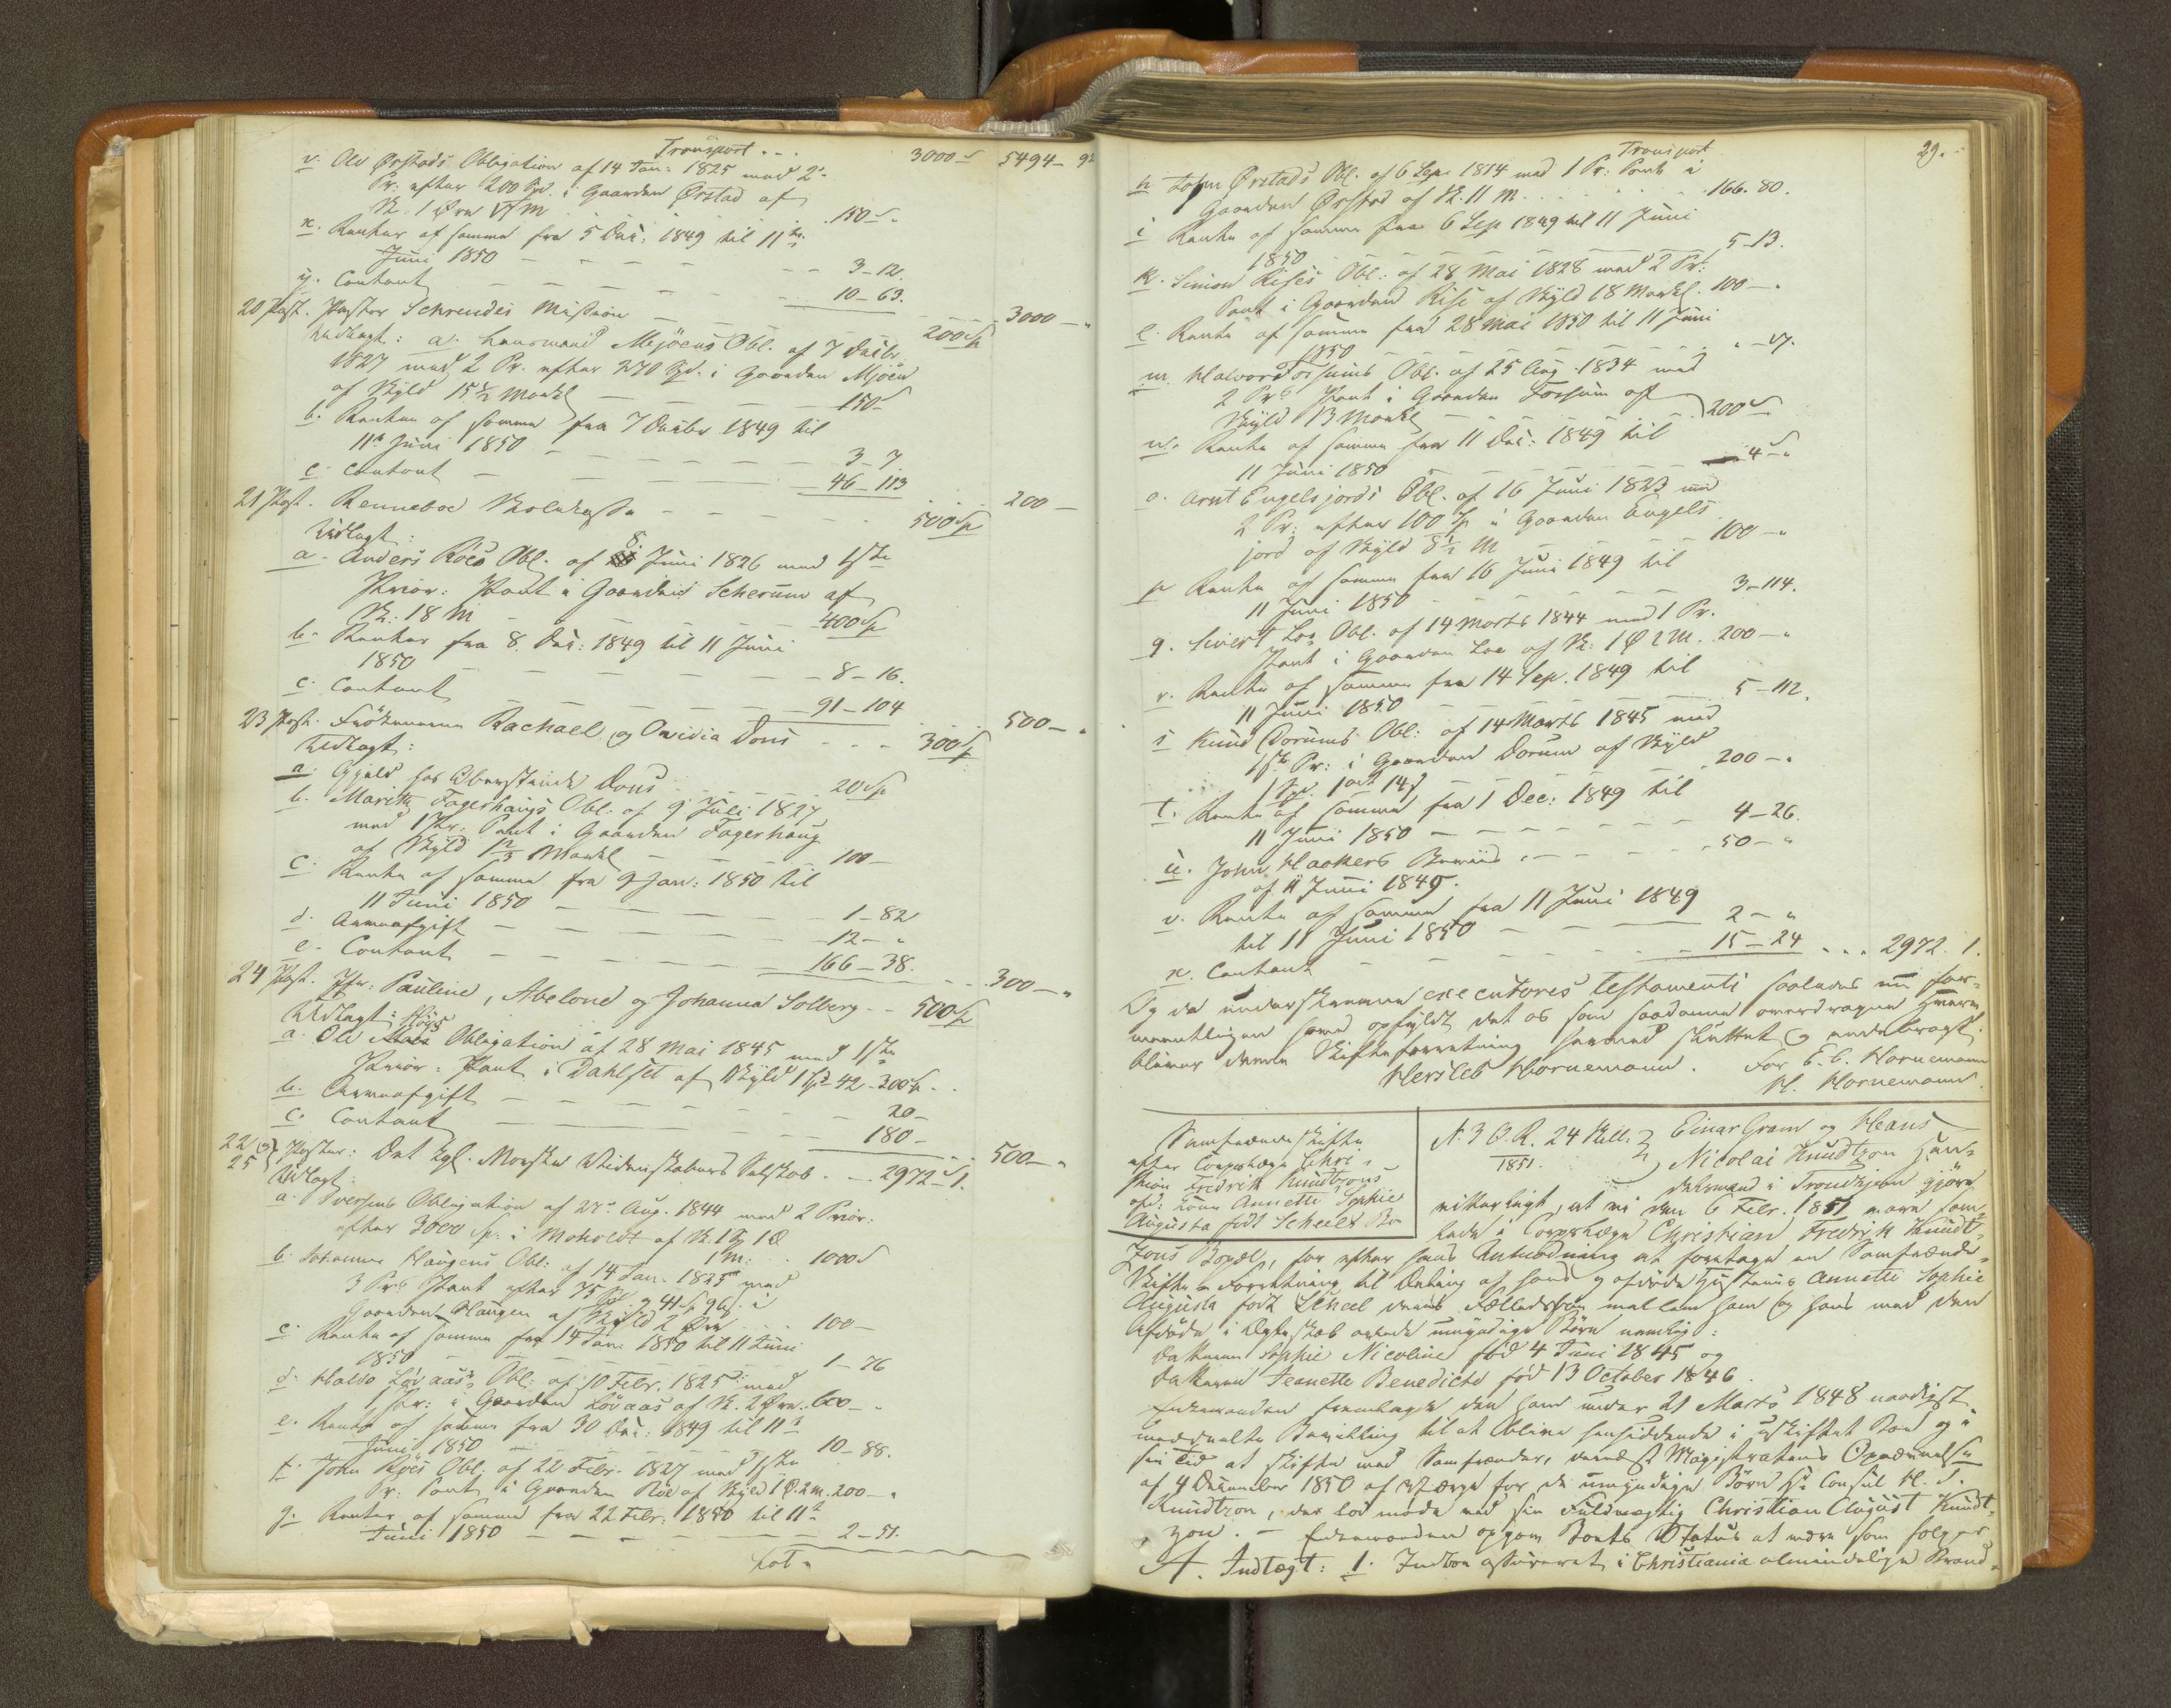 Transport . . . 3000 5494 - 92
v. Ole Ørstads Obligation af 14 Jan: 1825 med 2
Pr: efter 200 Spd. i Gaarden Ørstad af
Sk. 1 Øre 150 -
x. Renter af samme fra 5 Dec: 1849 til 11te
Juni 1850 - - - - 3 - 12.
y. Contant - - - - 10 - 63.
3000 - "
20 Post. Pastor Schreudes Mission - - - 200 Sp
Udlagt: a. Lensmand Mjöens Obl. af 7 Decbr
1827 med 2 Pr. efter 270 Spd. i Gaarden Mjöen
af Skyld 15 1/2 Markl - - - 150
b. Renten af samme fra 7 Decbr 1849 til
11te Juni 1850 - - - 3 - 7
c. Contant - - - 46 - 113
200 -
21 Post. Renneboe Skolekasse - - - 500 Sp
Udlagt:
a. Anders Röes Obl. af 8. Juni 1826 med 1ste
Prior: Pant i Gaarden Scherum af
Sk. 18 M - - - 400 Sp
b. Renter fra 8. Dec: 1849 til 11 Juni
1850 - - - 8 - 16.
c. Contant - - - 91 - 104
500 - "
23 Post. Frökenerne Rachael og Ovidia Dons - - - 300 Sp
Udlagt:
a. Gjæld hos Oberstinde Dons - - - 20 Sp
b. Marith Fagerhaugs Obl. af 9 Juli 1827
med 1 Pr. Pant i Gaarden Fagerhaug
af Skyld 1 2/3 Markl - - - 100 -
c. Rente af samme fra 9 Jan: 1850 til
11 Juni 1850 - - - 1 - 82
d. Arveafgift - - - 12 - "
e. Contant - - - 166 - 38.
300 - "
24 Post. Jfr: Pauline, Abelone og Johanna Solberg - - 500 Sp
Udlagt:
a. Ole Obligation af 28 Mai 1845 med 1ste
Prior: Pant i Dahlset af Skyld 1 - 42 - 300 Sp.
b. Arveafgift - - - 20 -
c. Contant - - - 180 -
500 - "
22 og 25 Poster: Det kgl. Norske Videnskabers Selskab - - 2972 - 1.
Udlagt:
a. Iversens Obligation af Aug. 1844 med 2 Prior:
efter 3000 Sp. i Moholdt af Sk. 1
1 M: - 1000
b. Johannes Haugens Obl: af 14 Jan. 1825 med
3 Prs Pant efter 75 og 41 i
Gaarden Haugen af Skyld 2 Øre - - 100 -
c. Rente af samme fra 14 Jan: 1850 til 11 Juni
1850 - - - 1 - 76
d. Haldo Lövaas's Obl: af 10 Febr. 1825 med
1 Pr: i Gaarden Lövaas af Sk. 2 Øre. 600 -
e. Rente af samme fra 30 Dec: 1849 til 11te
Juni 1850 - - - 10 - 88.
f. John Röes Obl: af 22 Febr. 1827 med 1ste
Pr: Pant i Gaarden Röe af Skyld 1 Ø. 2 M. 200 - "
g. Renter af samme fra 22 Febr: 1850 til 11te
Juni 1850 - - - 2 - 51.
Lat.
29.
Transport
h. John Ørstads Obl. af 6 Sep. 1814 med 1 Pr: Pant i
Gaarden Ørstad af Sk. 11 M. - - - 166. 80.
i. Rente af samme fra 6 Sep 1849 til 11 Juni
1850 - - - 5 - 13.
k. Simon Rises Obl: af 28 Mai 1828 med 2 Pr:
Pant i Gaarden Rise af Skyld 18 Markl. 100 - "
l. Rente af samme fra 28 Mai 1850 til 11 Juni
1850 - - -
m. Halvor Forsums Obl. af 25 Aug. 1834 med
2 Prs Pant i Gaarden Forsum af
Skyld 13 Markl - - - 200
n. Rente af samme fra 11 Dec: 1849 til
11 Juni 1850 - - - 4 - "
o. Arnt Engelsjords Obl. af 16 Juni 1823 med
2 Pr: efter 100 Sp i Gaarden Engels
jord af Skyld 8 1/2 M - - - 100 - "
p. Rente af samme fra 16 Juni 1849 til
11 Juni 1850 - - - 3 - 114.
q. Sivert Loe Obl. af 14 Marts 1844 med 1 Pr.
Pant i Gaarden Loe af Sk: 1 Ø 2 M. 200 - "
r. Rente af samme fra 14 Sep. 1849 til
11 Juni 1850 - - - 5 - 112.
s. Knud Dorums Obl: af 14 Marts 1845 med
1ste Pr: i Gaarden Dorum af Skyld
1 Spd. 1 ort 14 s - - - 200 - "
t. Rente af samme fra 1 Dec: 1849 til
11 Juni 1850 - - - 4 - 26.
u. John Haakers Beviis - - - 50 - "
af 11 Juni 1849.
v. Rente af samme fra 11 Juni 1849
til 11 Juni 1850 - - - 2 - "
x. Contant - - - 15 - 24 - - - 2972. 1.
Og da underskrevne executores testamenti saaledes nu for-
mentligen have opfyldt det os som saadanne overdragne Hverv
bliver denne Skifteforretning hermed sluttet og endebragt.
Hersleb Hornemann. For E. C. Hornemann
H. Hornemann.
Samfrændeskifte
efter Coopvhægr Chri-
stian Fredrik Knudtzons
afd: Kone Annette Sophie
Augusta född Scheels Bo
N. 3 O. R. 24 Skill.
1851.
Einar Gram og Hans
Nicolai Knudtzon Han-
delsmænd i Trondhjem gjöre
vitterligt, at vi den 6 Febr. 1851 vare sam-
lede i Christian Fredrik Knudt-
zons Bopæl, for efter hans Anmodning at foretage en Samfrænde-
Skifte-Forretning til Deling af hans og afdöde Hustrues Annette Sophie
Augusta födt Scheel deres Fælledsbo mellem ham og hans med den
Afdöde i Ægteskab avlede umyndige Börn nemlig:
Datteren Sophie Nicoline född 4 Juni 1845 og
Datteren Jeanette Benedicte född 13 October 1846.
Enkemanden fremlagde den ham under 21 Marts 1848 naadigst
meddeelte Bevilling til at blive hensiddende i uskiftet Bo og i
sin Tid at skifte med Samfrænder, dernæst Magistratens Opnævnelse
af 4 December 1850 af Værge for de umyndige Börn Hr Consul H. J.
Knudtzon, der lod möde ved sin Fuldmægtig Christian August Knudt-
zon. - Enkemanden opgav Boets Status at være som fölger
A. Indtægt: 1. Indboe assureret i Christiania almindelige Brand-